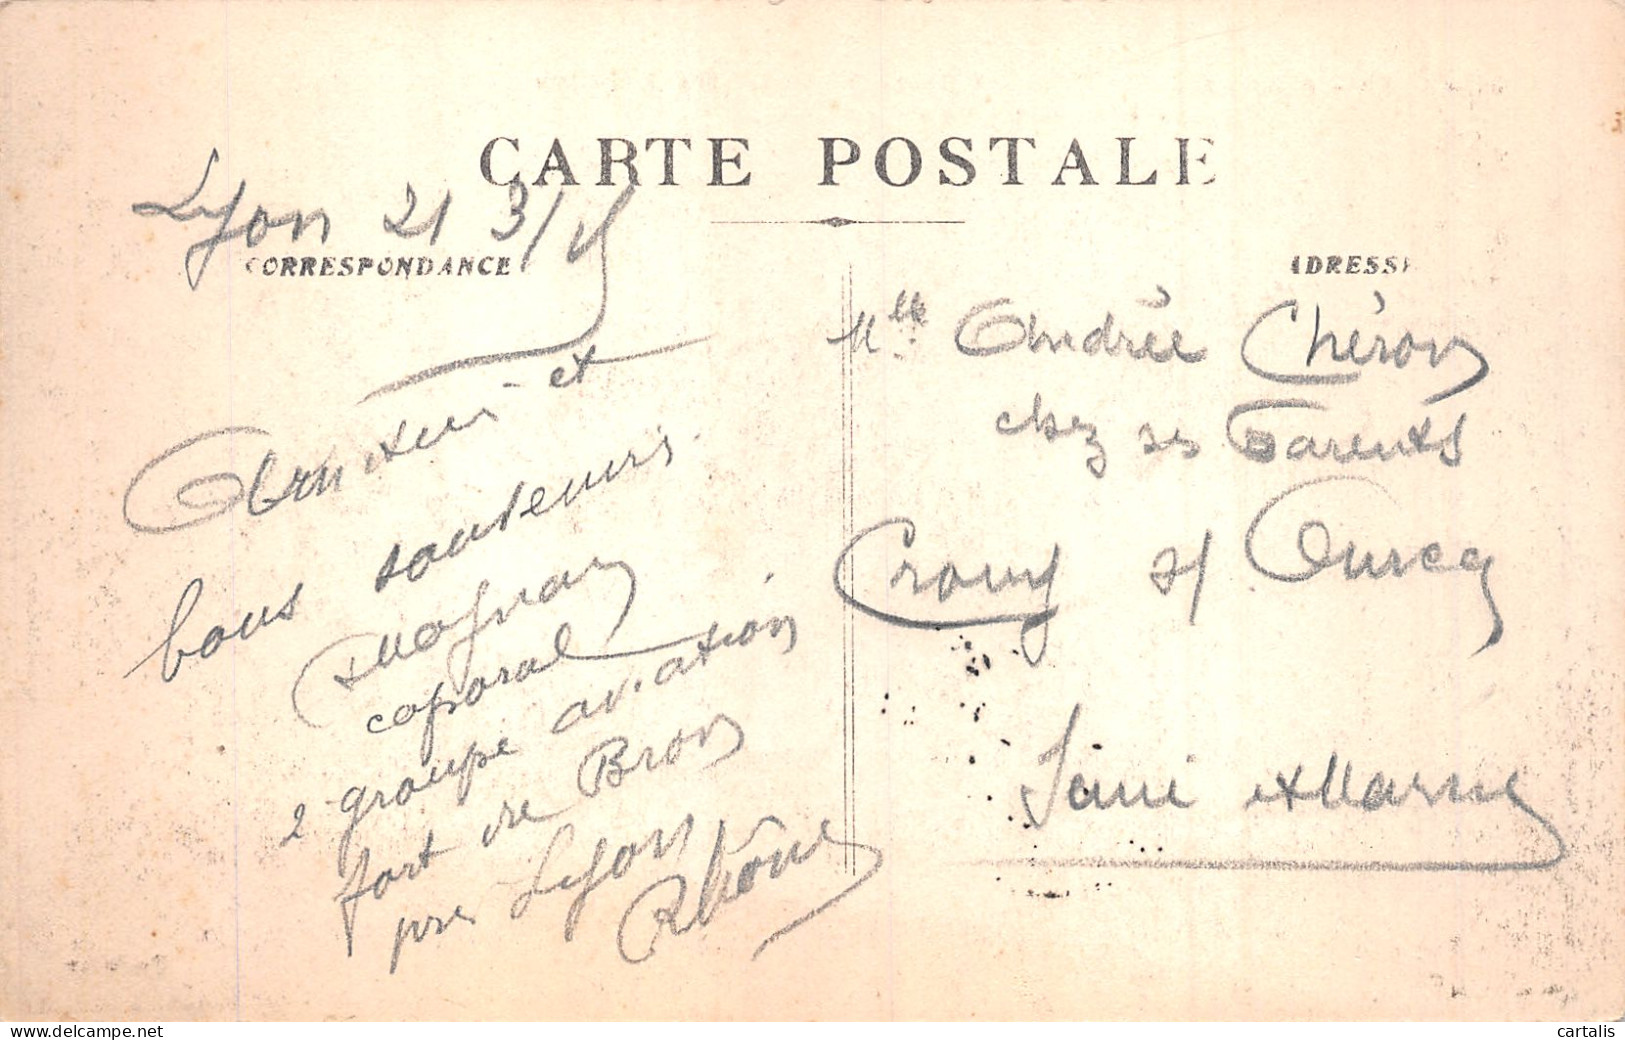 CARTE POSTALE
Lyon 21 3/15
CORRESPONDANCE
et
bons souvenirs
caporal
2 groupe aviation
fort de Bron
près Lyon
Rhône
ADRESSE
Mlle Andrée Chéron
chez ses Parents
Crouy s/ Ourcq
Seine et Marne
delcampe.net
cartalis